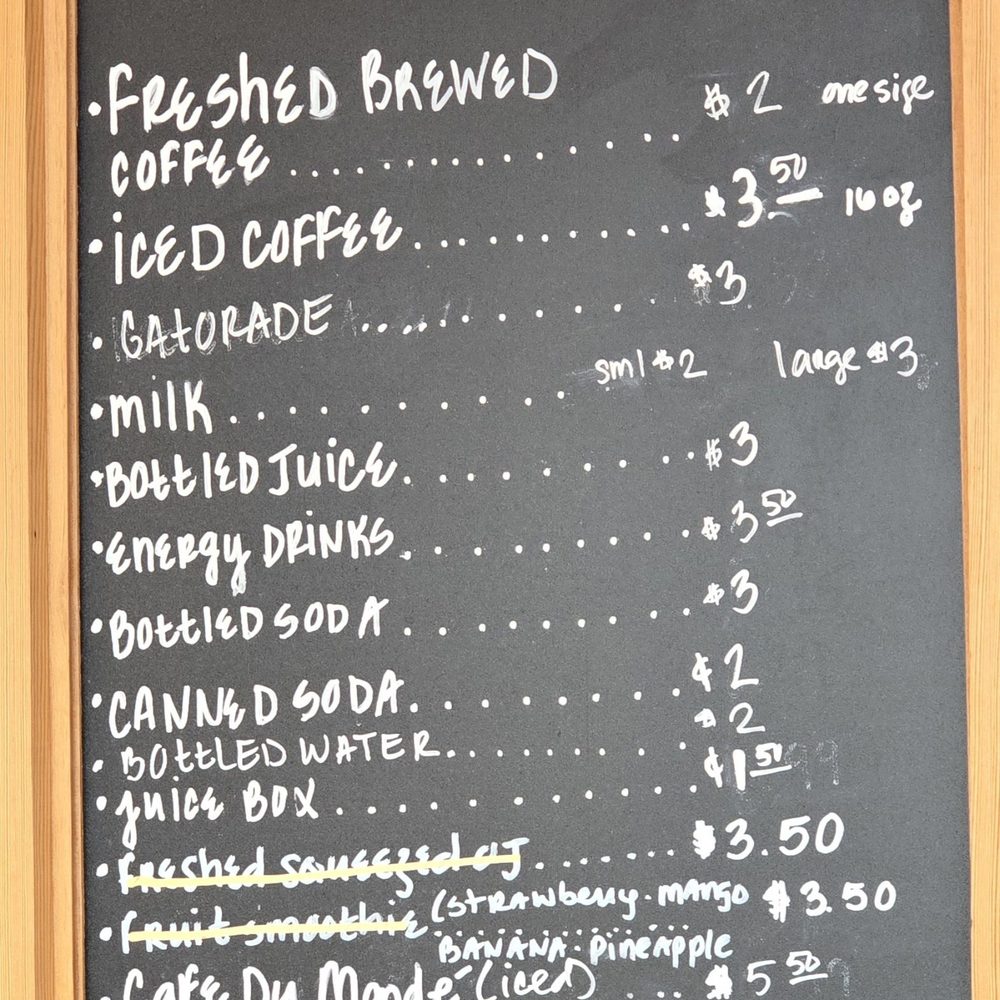 • FRESHED BREWED $2 one size
COFFEE ...............
• ICED COFFEE ............ $3.50 16 oz
• GATORADE ........... $3
• milk .......... sml $2 large $3
• BOTTLED JUICE ......... $3
• ENERGY DRINKS ......... $3 50
• BOTTLED SODA ......... $3
• CANNED SODA ......... $2
• BOTTLED WATER ......... $2
• juice BOX ........... $1 50
• freshed squeezed OJ ....... $3.50
• fruit smoothie (STRAWberry · MANGO $3.50
BANANA · pineapple
• Cafe Du Monde (iced) ... $5 50